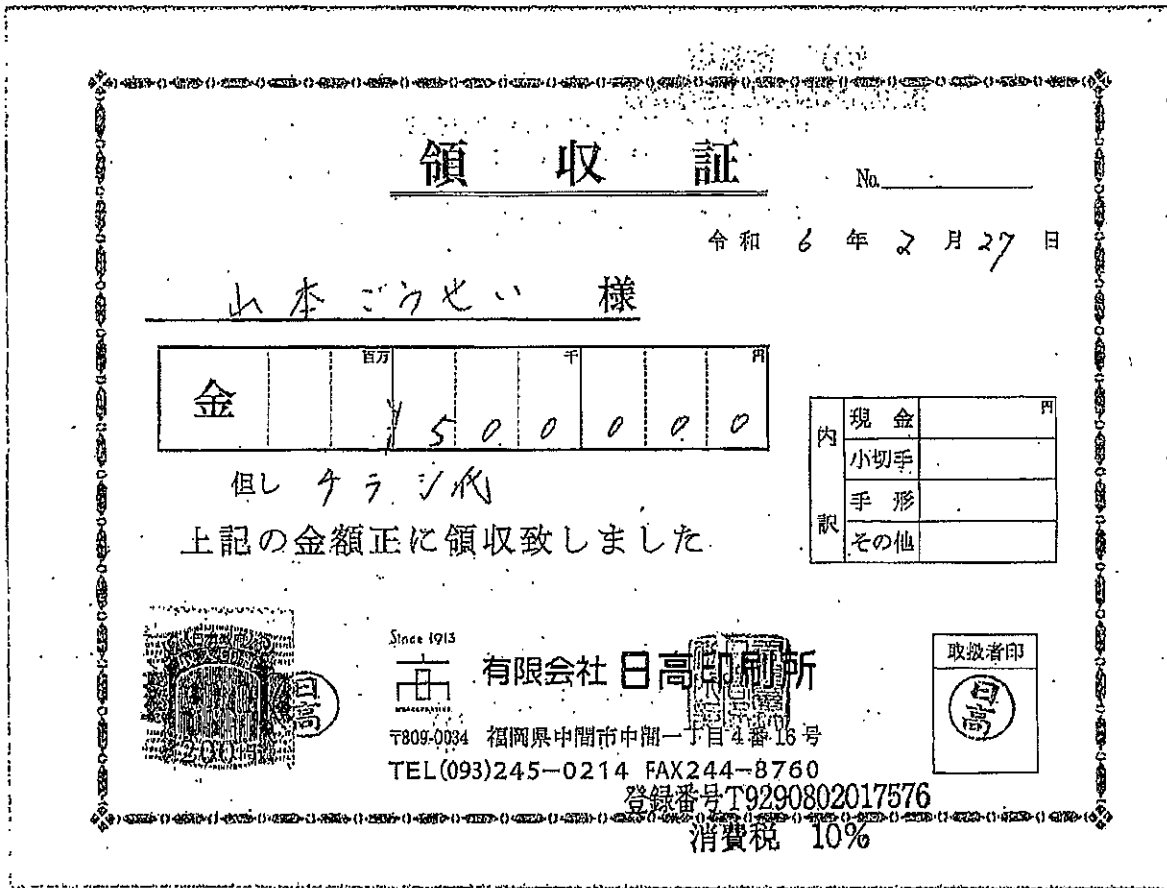 領収証
No.
令和 6 年 2 月 27 日
山本ごうせい 様
金 百万 千 円
¥500000
但し チラシ代
上記の金額正に領収致しました
内訳
現金 円
小切手
手形
その他
Since 1913
有限会社 日高印刷所
〒809-0034 福岡県中間市中間一丁目4番16号
TEL(093)245-0214 FAX244-8760
登録番号T9290802017576
消費税 10%
200円
日高
取扱者印
日高